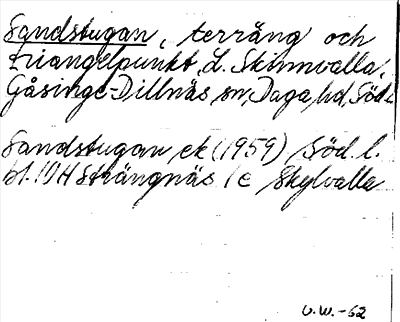 Sandstugan, terräng och
triangelpunkt, L. Skinnvalla,
Gåsinge-Dillnäs sn, Daga hd, Söd.l.
Sandstugan ek (1959) Söd. l.
bl. 10H Strängnäs 1e Skylvalla
U.W.-62